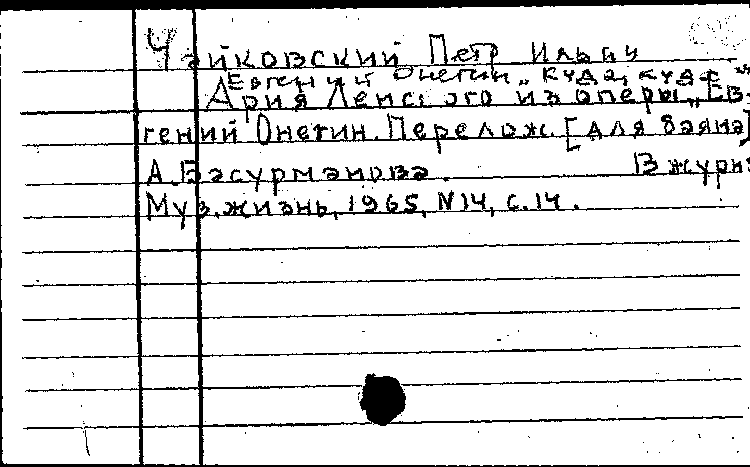 Чайковский Петр Ильич
Евгений Онегин „Куда, куда"
Ария Ленского из оперы „Ев-
гений Онегин. Перелож. [для баяна]
А.Басурманова. В журн:
Муз.жизнь, 1965, N14, с.14.